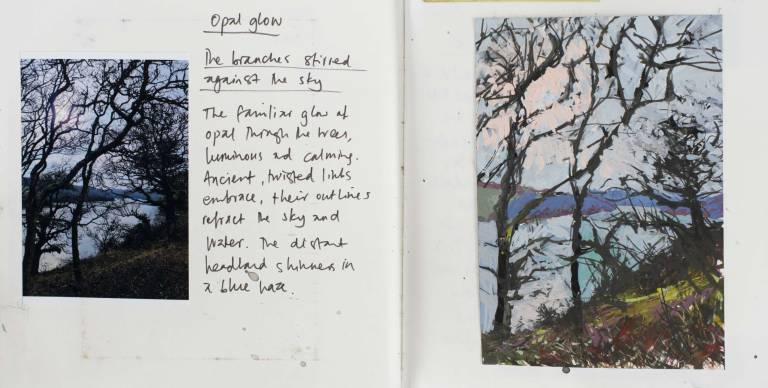 Opal glow
The branches stirred
against the sky
The familiar glow of
opal through the trees,
luminous and calming.
Ancient, twisted limbs
embrace, their outlines
refract the sky and
water. The distant
headland shimmers in
a blue haze.